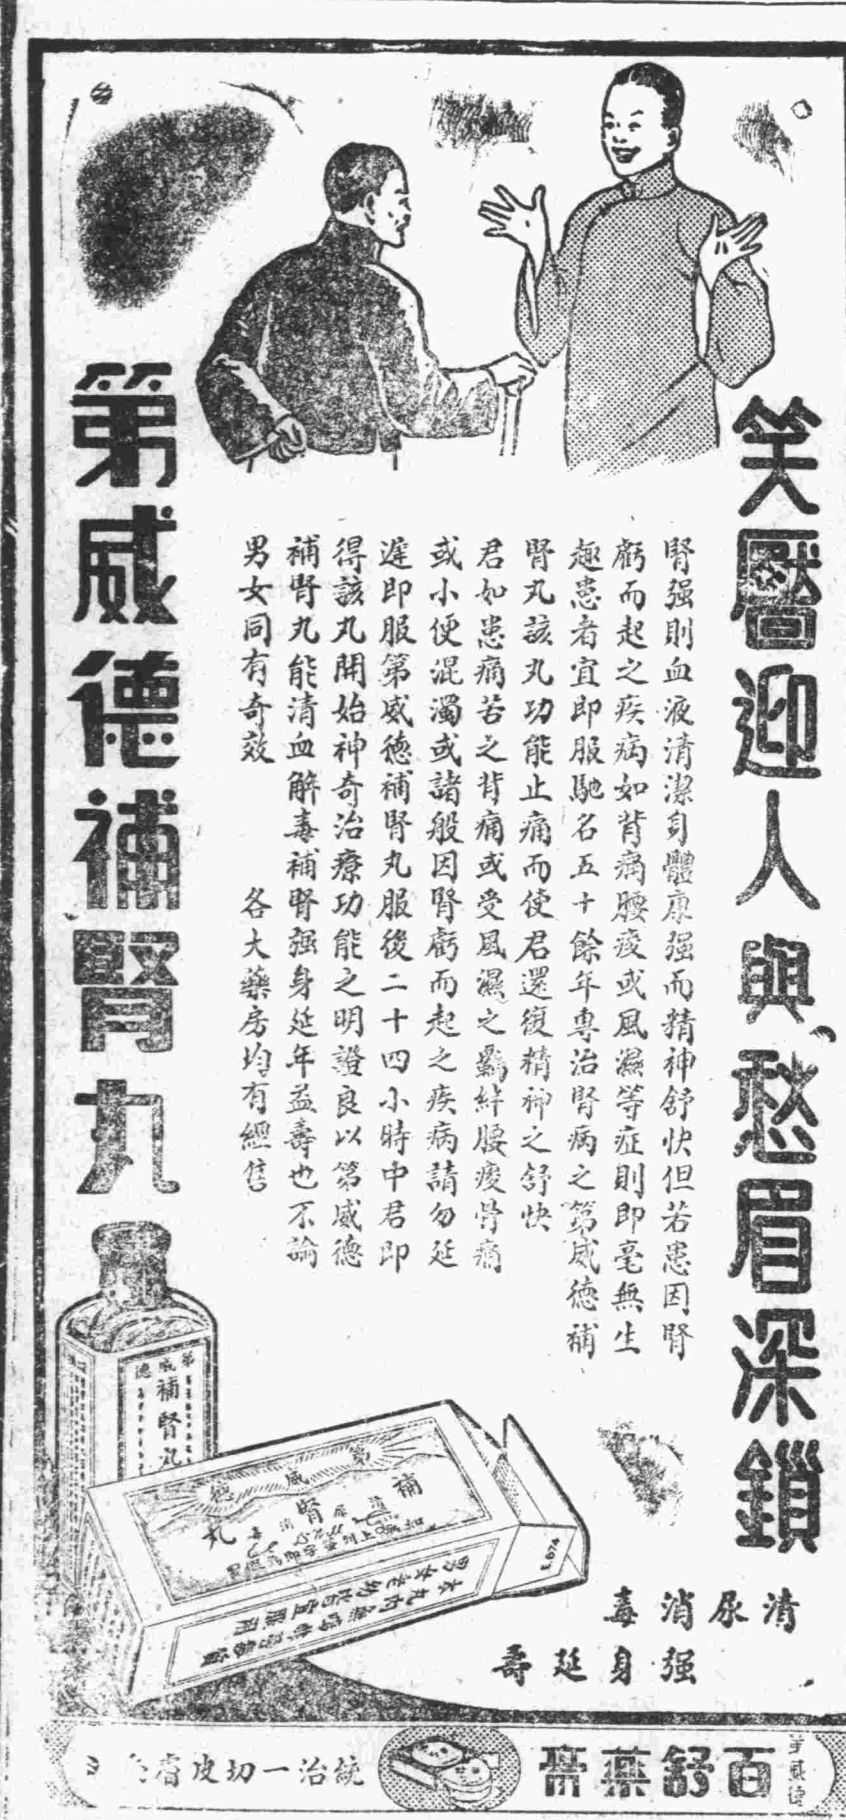 笑靨迎人與愁眉深鎖
腎强則血液清潔身體康强而精神舒快但若患因腎
虧而起之疾病如背痛腰痠或風濕等症則即毫無生
趣患者宜即服馳名五十餘年專治腎病之第威德補
腎丸該丸功能止痛而使君還復精神之舒快
君如患痛苦之背痛或受風濕之羈絆腰痠骨痛
或小便混濁或諸般因腎虧而起之疾病請勿延
遲即服第威德補腎丸服後二十四小時中君即
得該丸開始神奇治療功能之明證良以第威德
補腎丸能清血解毒補腎强身延年益壽也不論
男女同有奇效 各大藥房均有經售
第威德補腎丸
清尿消毒
强身延壽
第威德
補腎丸
第威德
補腎丸
百舒藥膏
統治一切皮膚